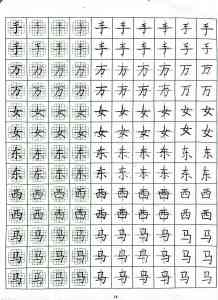 手手手手手手手手手手
手手手手手手手手手手
万万万万万万万万万万
万万万万万万万万万万
女女女女女女女女女女
女女女女女女女女女女
东东东东东东东东东东
东东东东东东东东东东
西西西西西西西西西西
西西西西西西西西西西
马马马马马马马马马马
马马马马马马马马马马
马马马马马马马马马马